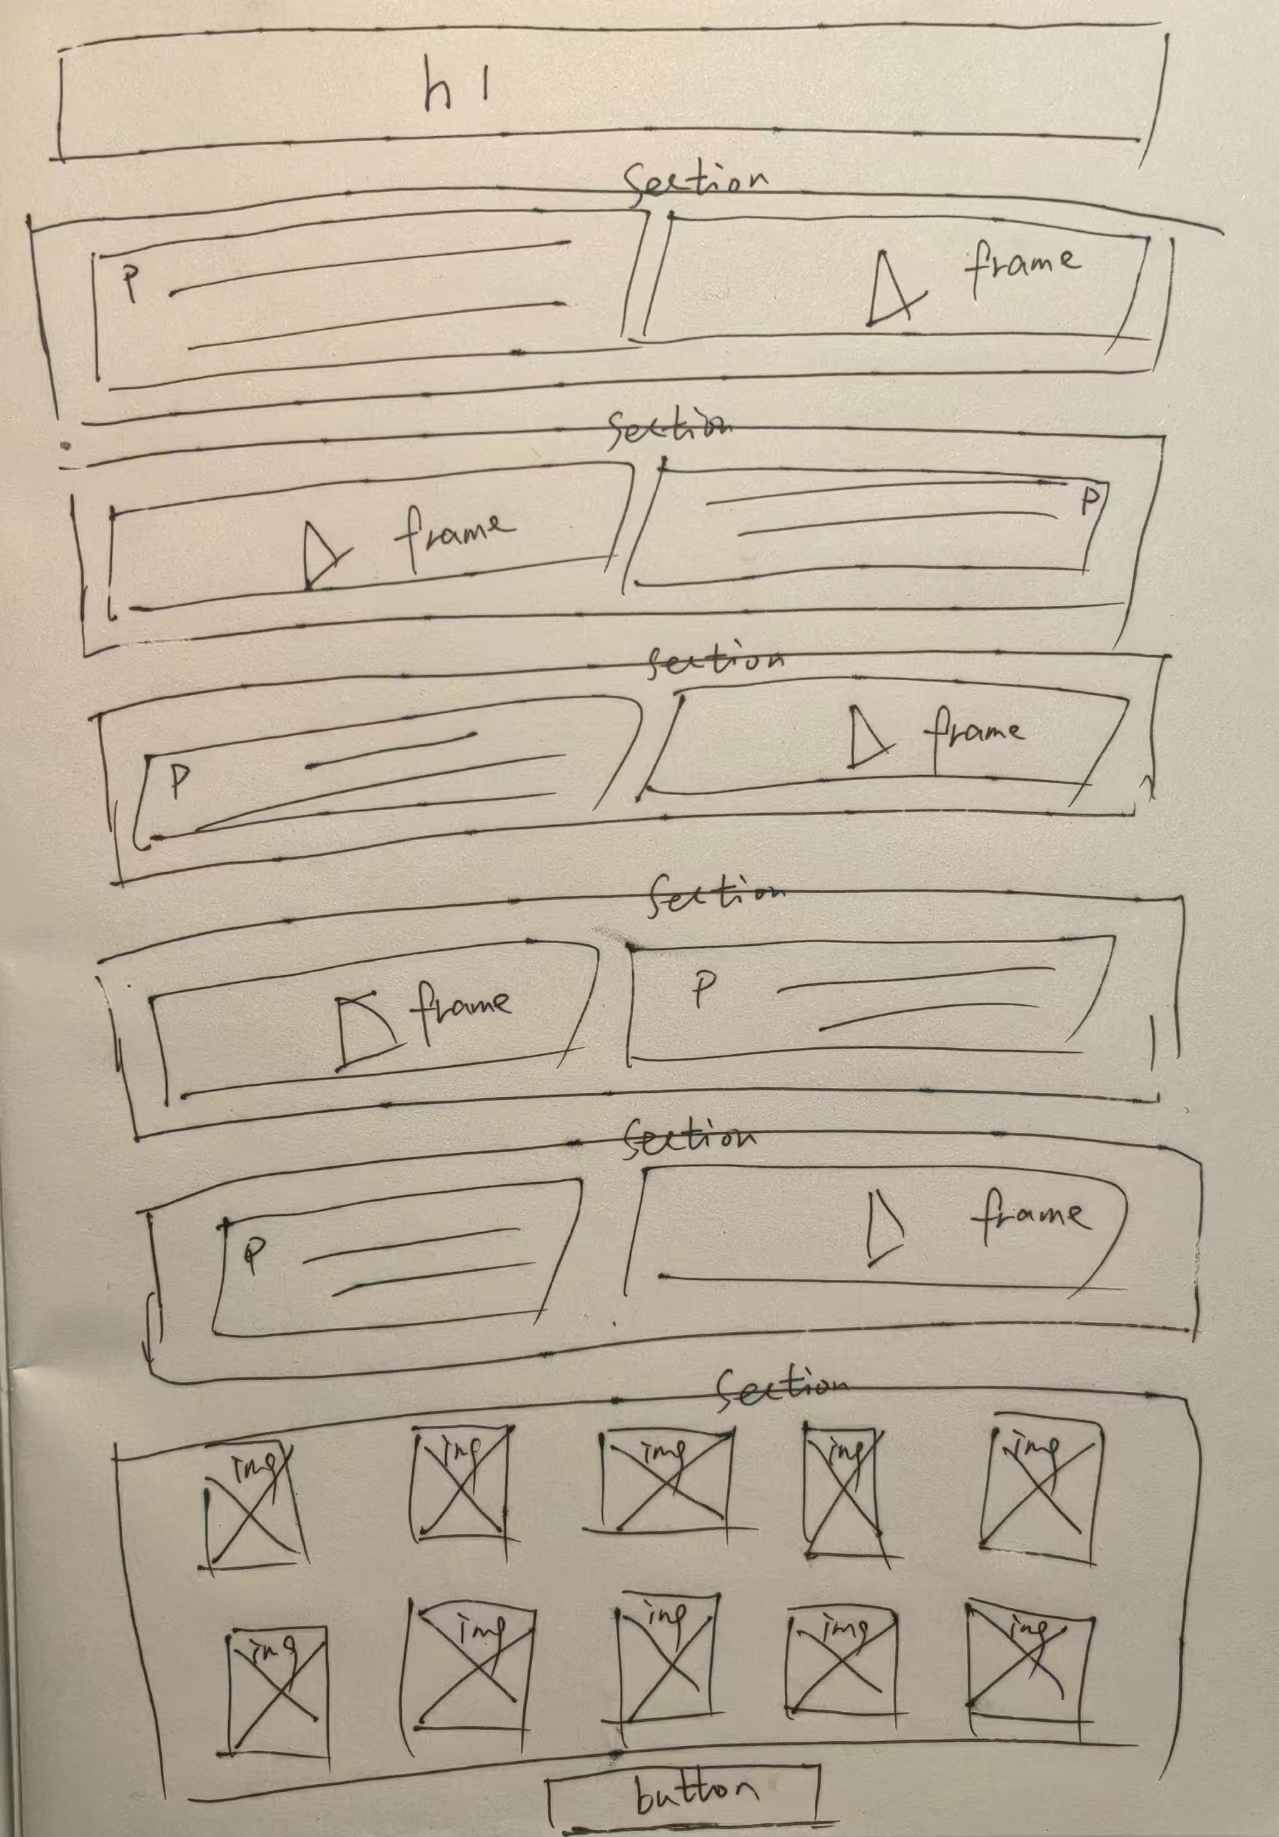 h1
section
P frame
section
frame P
section
P frame
section
frame P
section
P frame
section
img img img img img
img img img img img
button